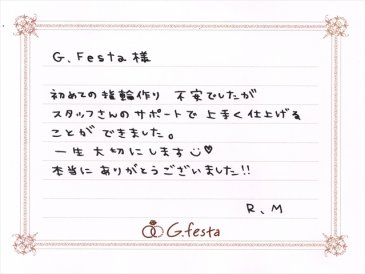 G. Festa 様
初めての指輪作り 不安でしたが
スタッフさんのサポートで 上手く仕上げる
ことが できました。
一生 大切にします☺♡
本当に ありがとうございました!!
R. M
G.festa